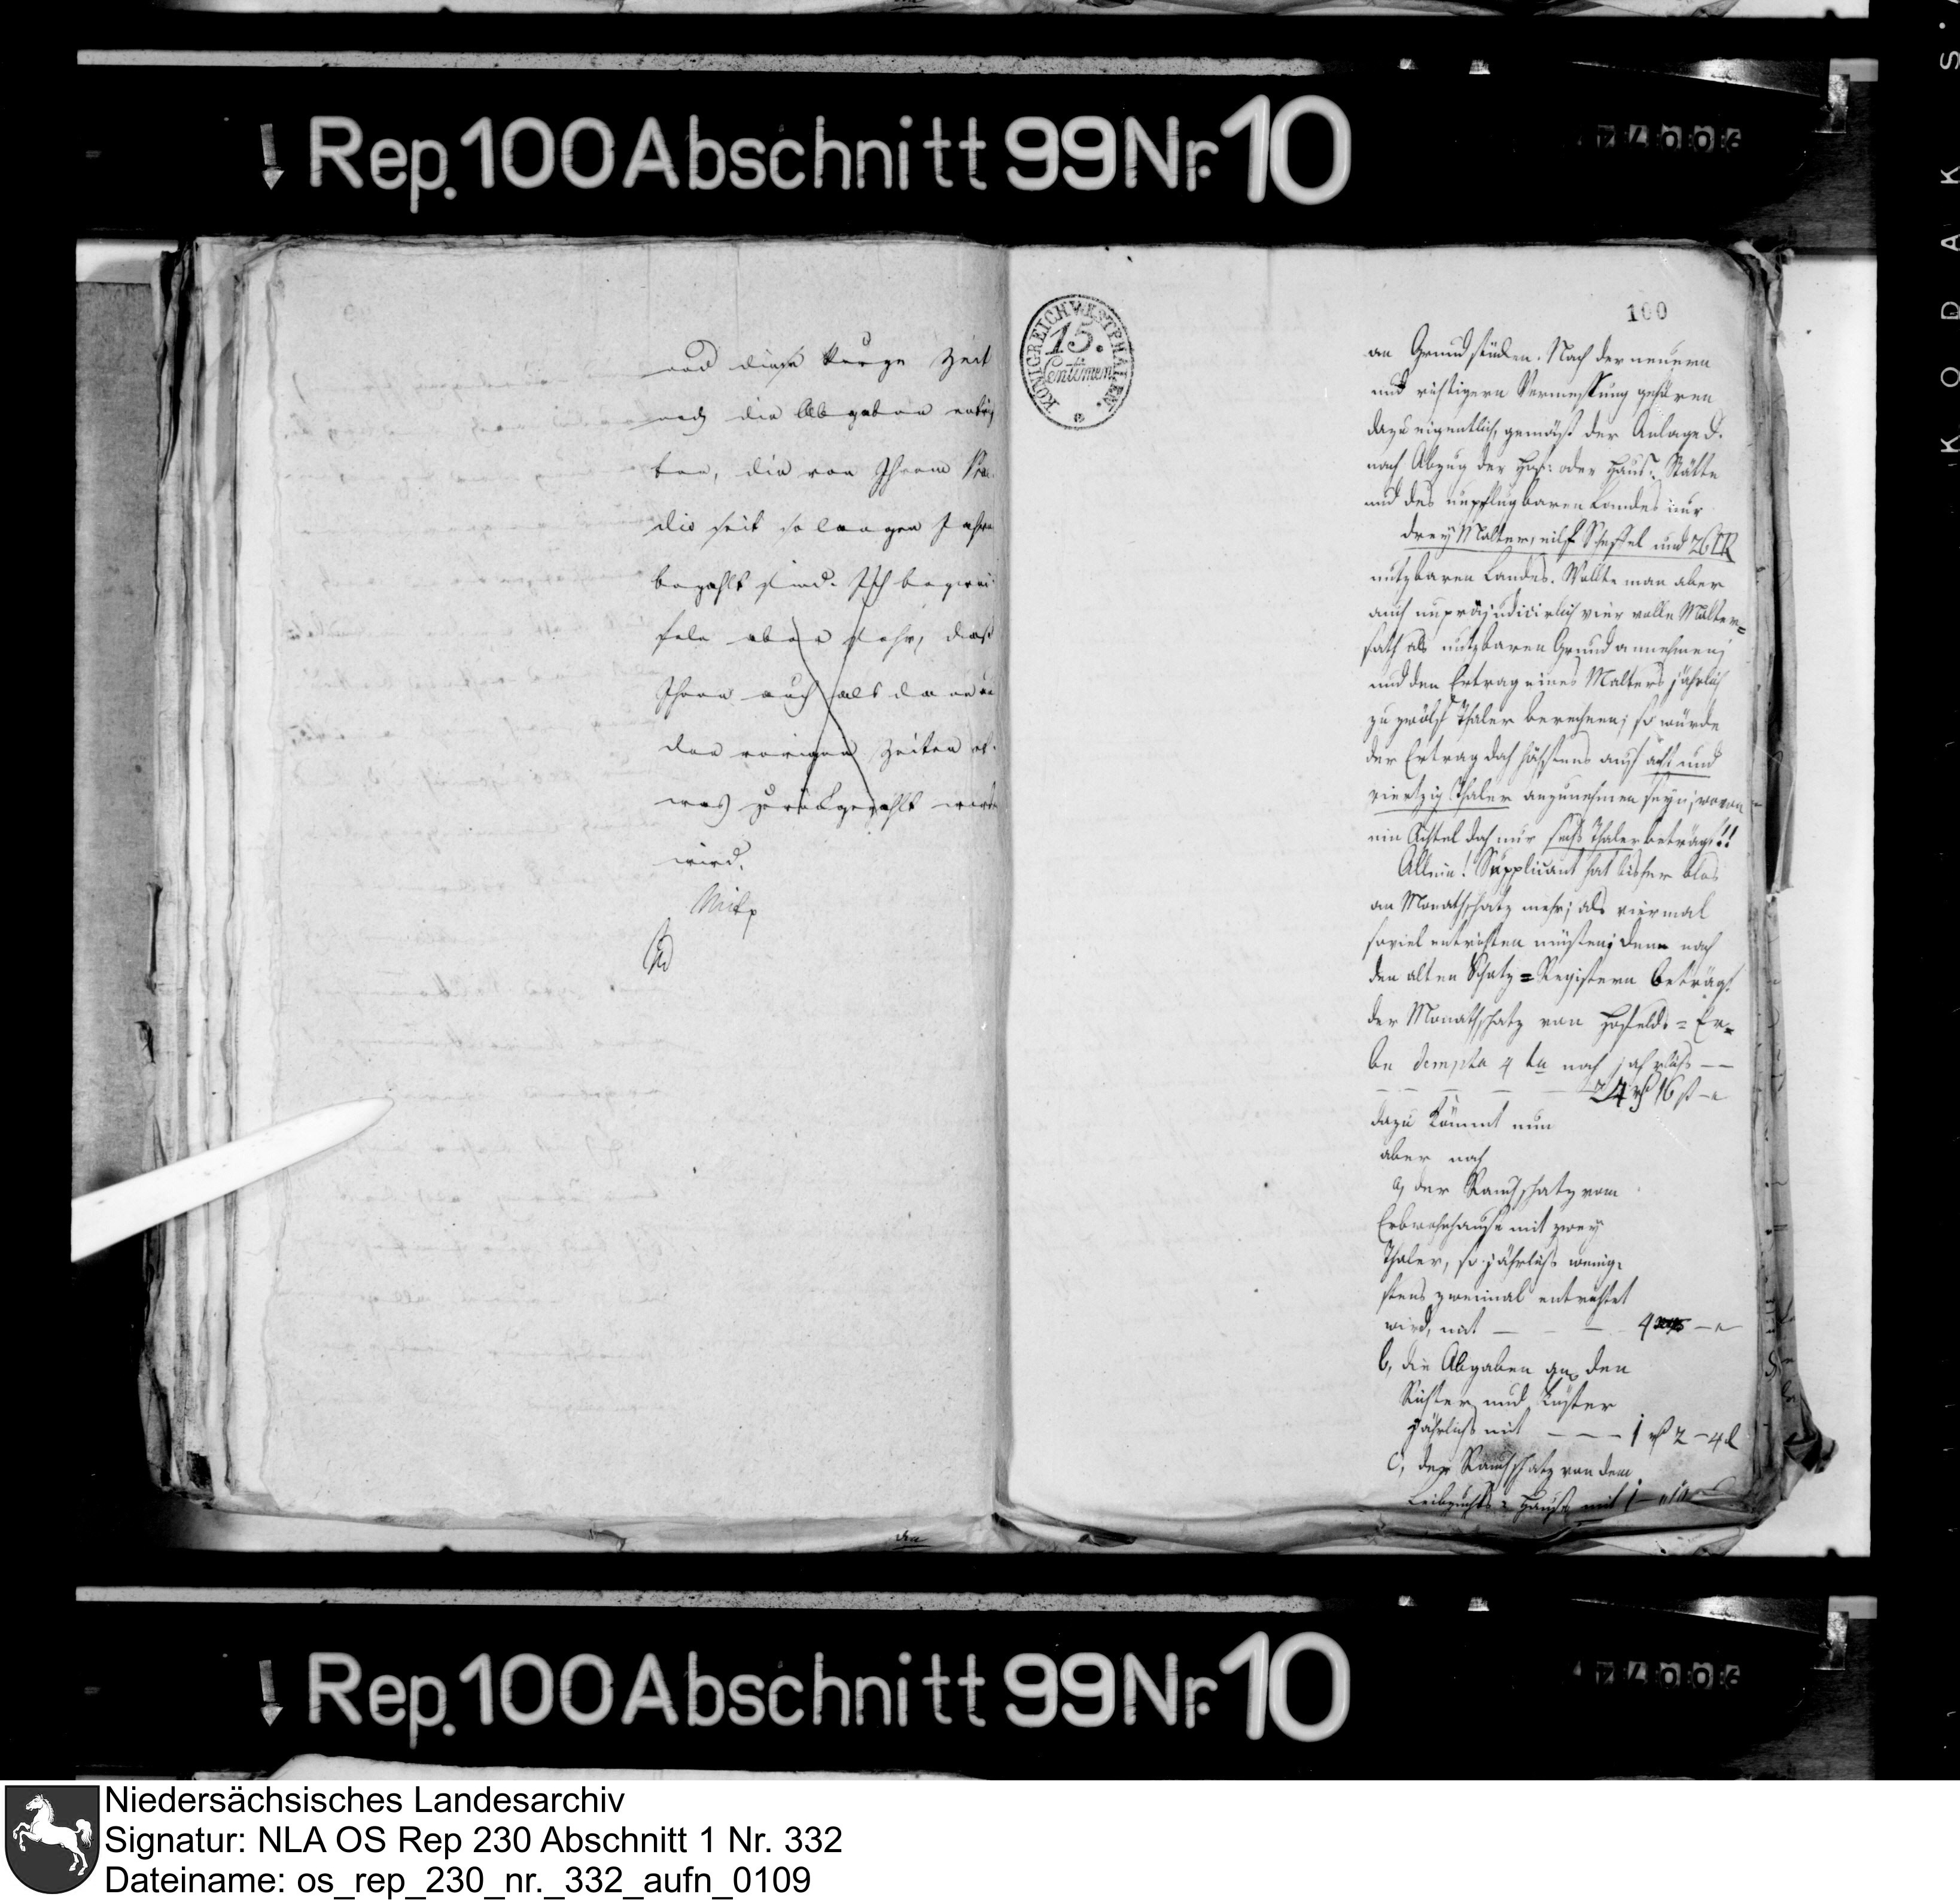 Rep. 100 Abschnitt 99 Nr. 10
und diese kurze Zeit
noch die Abgaben entrich
ten, die von Ihrem
die seit so langen Jahren
bezahlt sind. Ich bezwei
feln aber sehr, daß
Ihnen auch als dann
den vorigen Zeiten et
was zurückgezahlt werden
wird.
KÖNIGREICH WESTPHALEN.
15.
Centimen
100
an Grundstücken. Nach der neuern
und richtigern Vermessung gehören
dazu eigentlich, gemäß der Anlage d.
nach Abzug der Hof- oder Haus-Stätte
und des unpflugbaren Landes nur
drey Malter, eilf Scheffel und 26 R
nutzbaren Landes. Wollte man aber
auch unpräjudicirlich vier volle Malter=
sath als nutzbaren Grund annehmen;
und den Ertrag eines Malters jährlich
zu zwölf Thaler berechnen; so würde
der Ertrag doch höchstens auf acht und
viertzig Thaler anzunehmen seyn; wovon
ein Achtel doch nur sechs Thaler beträgt!!
Allein! Supplicant hat bisher blos
an Monathschatz mehr; als viermal
soviel entrichten müssen; denn nach
den alten Schatz=Registern beträgt
der Monathschatz von Hosfelds=Er=
be dempta 4ta noch jährlich --
24 rt 16 ß -
dazu kömmt nun
aber noch
a, der Rauchschatz vom
Erbwohnhause mit zwey
Thaler, so jährlich wenig-
stens zweimal entrichtet
wird, mit - - - 4 -
b, die Abgaben an den
Richter und Küster
jährlich mit - - - 1 rt 2 - 4 d
c, der Rauchschatz von dem
Leibzuchts=Hause mit 1 -
den
Rep. 100 Abschnitt 99 Nr. 10
KODAK S
Niedersächsisches Landesarchiv
Signatur: NLA OS Rep 230 Abschnitt 1 Nr. 332
Dateiname: os_rep_230_nr._332_aufn_0109